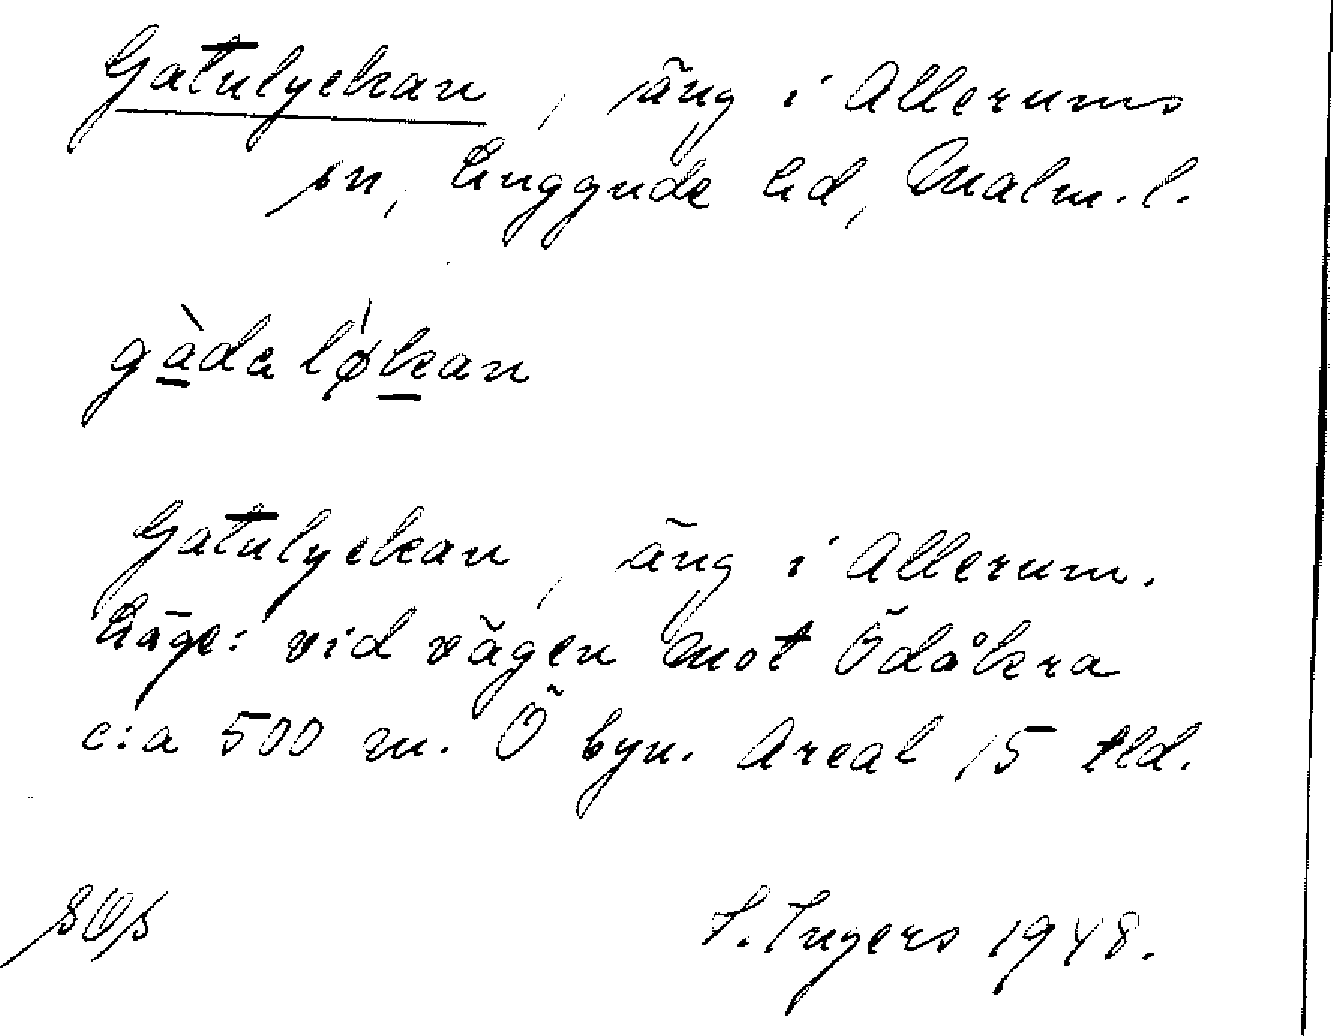 Gatulyckan, äng i Allerums
sn, Luggude hd, Malm.l.
gàdalø̀kan
Gatulyckan, äng i Allerum.
Läge: vid vägen mot Ödåkra
c:a 500 m. Ö byn. Areal 15 tld.
I. Ingers 1948.